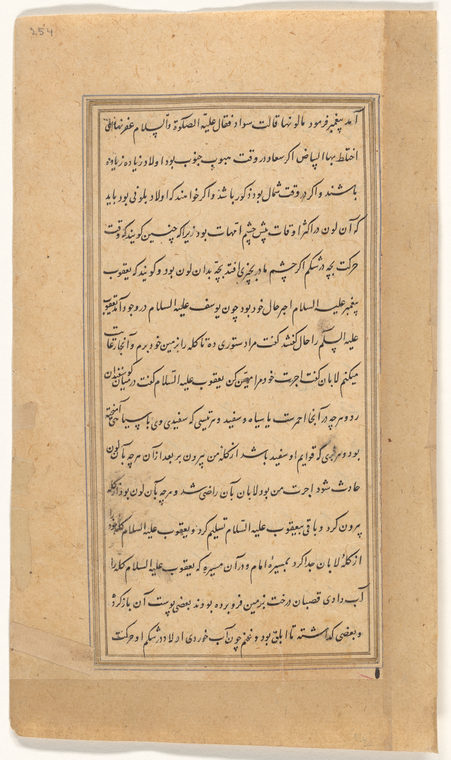 ۲۵۴
آمد پیغمبر فرمود مالونها قالت سواد فقال علیه الصلوة والسلام
اختلط بها البیاض اکر سعاد در وقت هبوب جنوب بود اولاد زیاده
باشند و اکر در وقت شمال بود ذکور باشند و اکر خواهند که اولاد بلونی بود باید
که آن لون در اکثر اوقات پیش چشم امهات بود زیرا که چنین کویند که وقت
حرکت بچه در شکم اکر چشم مادر بچیزی افتد بچه بدان لون بود و کویند که یعقوب
پیغمبر علیه السلام اجر حال خود بود چون یوسف علیه السلام در وجود آمد یعقوب
علیه السلام را حال کفتند کفت مرا دستوری ده تا کله را بزمین خود برم و آنجا
میکنم لابان کفت اجرت خود مرا معین کن یعقوب علیه السلام کفت در میان کوسفندان
رد و هرچه در آنجا احمرت یا سیاه و سفید و هر تیسی که سفیدی وی با سیاهی
بود و هر که قوایم او سفید باشد از کله من بیرون بر بعد از آن هرچه بآن لون
حادث شود اجرت من بود لابان بآن راضی شد و هرچه بآن لون بود از کله
بیرون کرد و باقی بیعقوب علیه السلام تسلیم کرد و یعقوب علیه السلام کله
از کله لابان جدا کرد بمسیره ایام و در آن مسیره که یعقوب علیه السلام کله را
آب دادی قصبان درخت بزمین فرو برده بودند بعضی پوست آن باز کرده
و بعضی کذاشته تا ابلق بود و غنم چون آب خوردی اولاد در شکم او حرکت